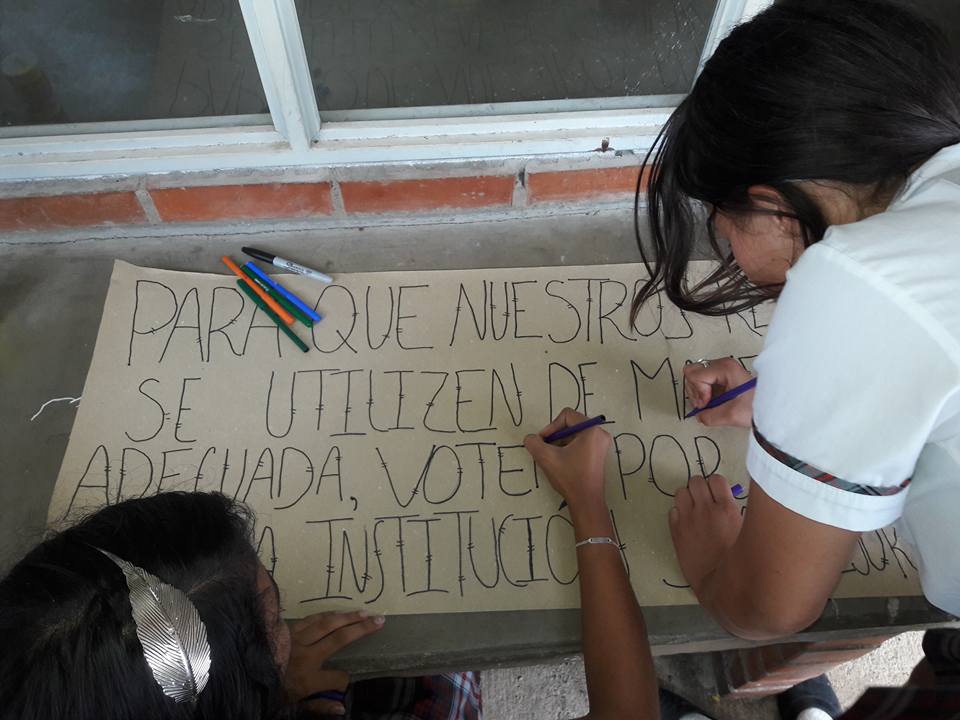 PARA QUE NUESTROS RE
SE UTILIZEN DE MANE
ADECUADA, VOTEN POR
A INSTITUCION